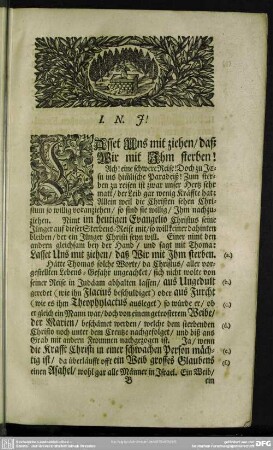 I. N. J!
LAsset Uns mit ziehen/ daß
Wir mit Ihm sterben!
Ach! eine schwere Reise! Doch zu Je-
su ins hi&#773;lische Paradeiß! Zum ster-
ben zu reisen ist zwar unser Hertz sehr
matt/ der Leib gar wenig Kräffte hat:
Allein weil die Christen sehen Chri-
stum so willig voranziehen/ so sind sie willig/ Ihm nachzu-
ziehen. Nimt im heutigen Evangelio Christus seine
Jünger auf dieser Sterbens-Reise mit/ so will keiner dahinten
bleiben/ der ein Jünger Christi seyn will. Einer nimt den
andern gleichsam bey der Hand/ und sagt mit Thoma:
Lasset Uns mit ziehen/ daß Wir mit Ihm sterben. (a.)
Hätte Thomas solche Worte/ da Christus/ aller vor-
gestellten Lebens-Gefahr ungeachtet/ sich nicht wolte von
seiner Reise in Judäam abhalten lassen/ aus Ungedult
geredet (wie ihn Flacius beschuldiget) oder aus Furcht (b.)
(wie es ihm Theophylactus ausleget) so würde er/ ob (c.)
er gleich ein Mann war/ doch von einem getrosterem Weibe/
der Marien/ beschämet werden/ welche dem sterbenden (d.)
Christo noch unter dem Creutze nachgefolget/ und biß ans
Grab mit andern Frommen nachgezogen ist. Ja/ wenn
die Krafft Christi in einer schwachen Person mäch-
tig ist/ da überläufft offt ein Weib grosses Glaubens
einen Asahel/ wohl gar alle Männer in Israel. Ein Weib/
B
ein